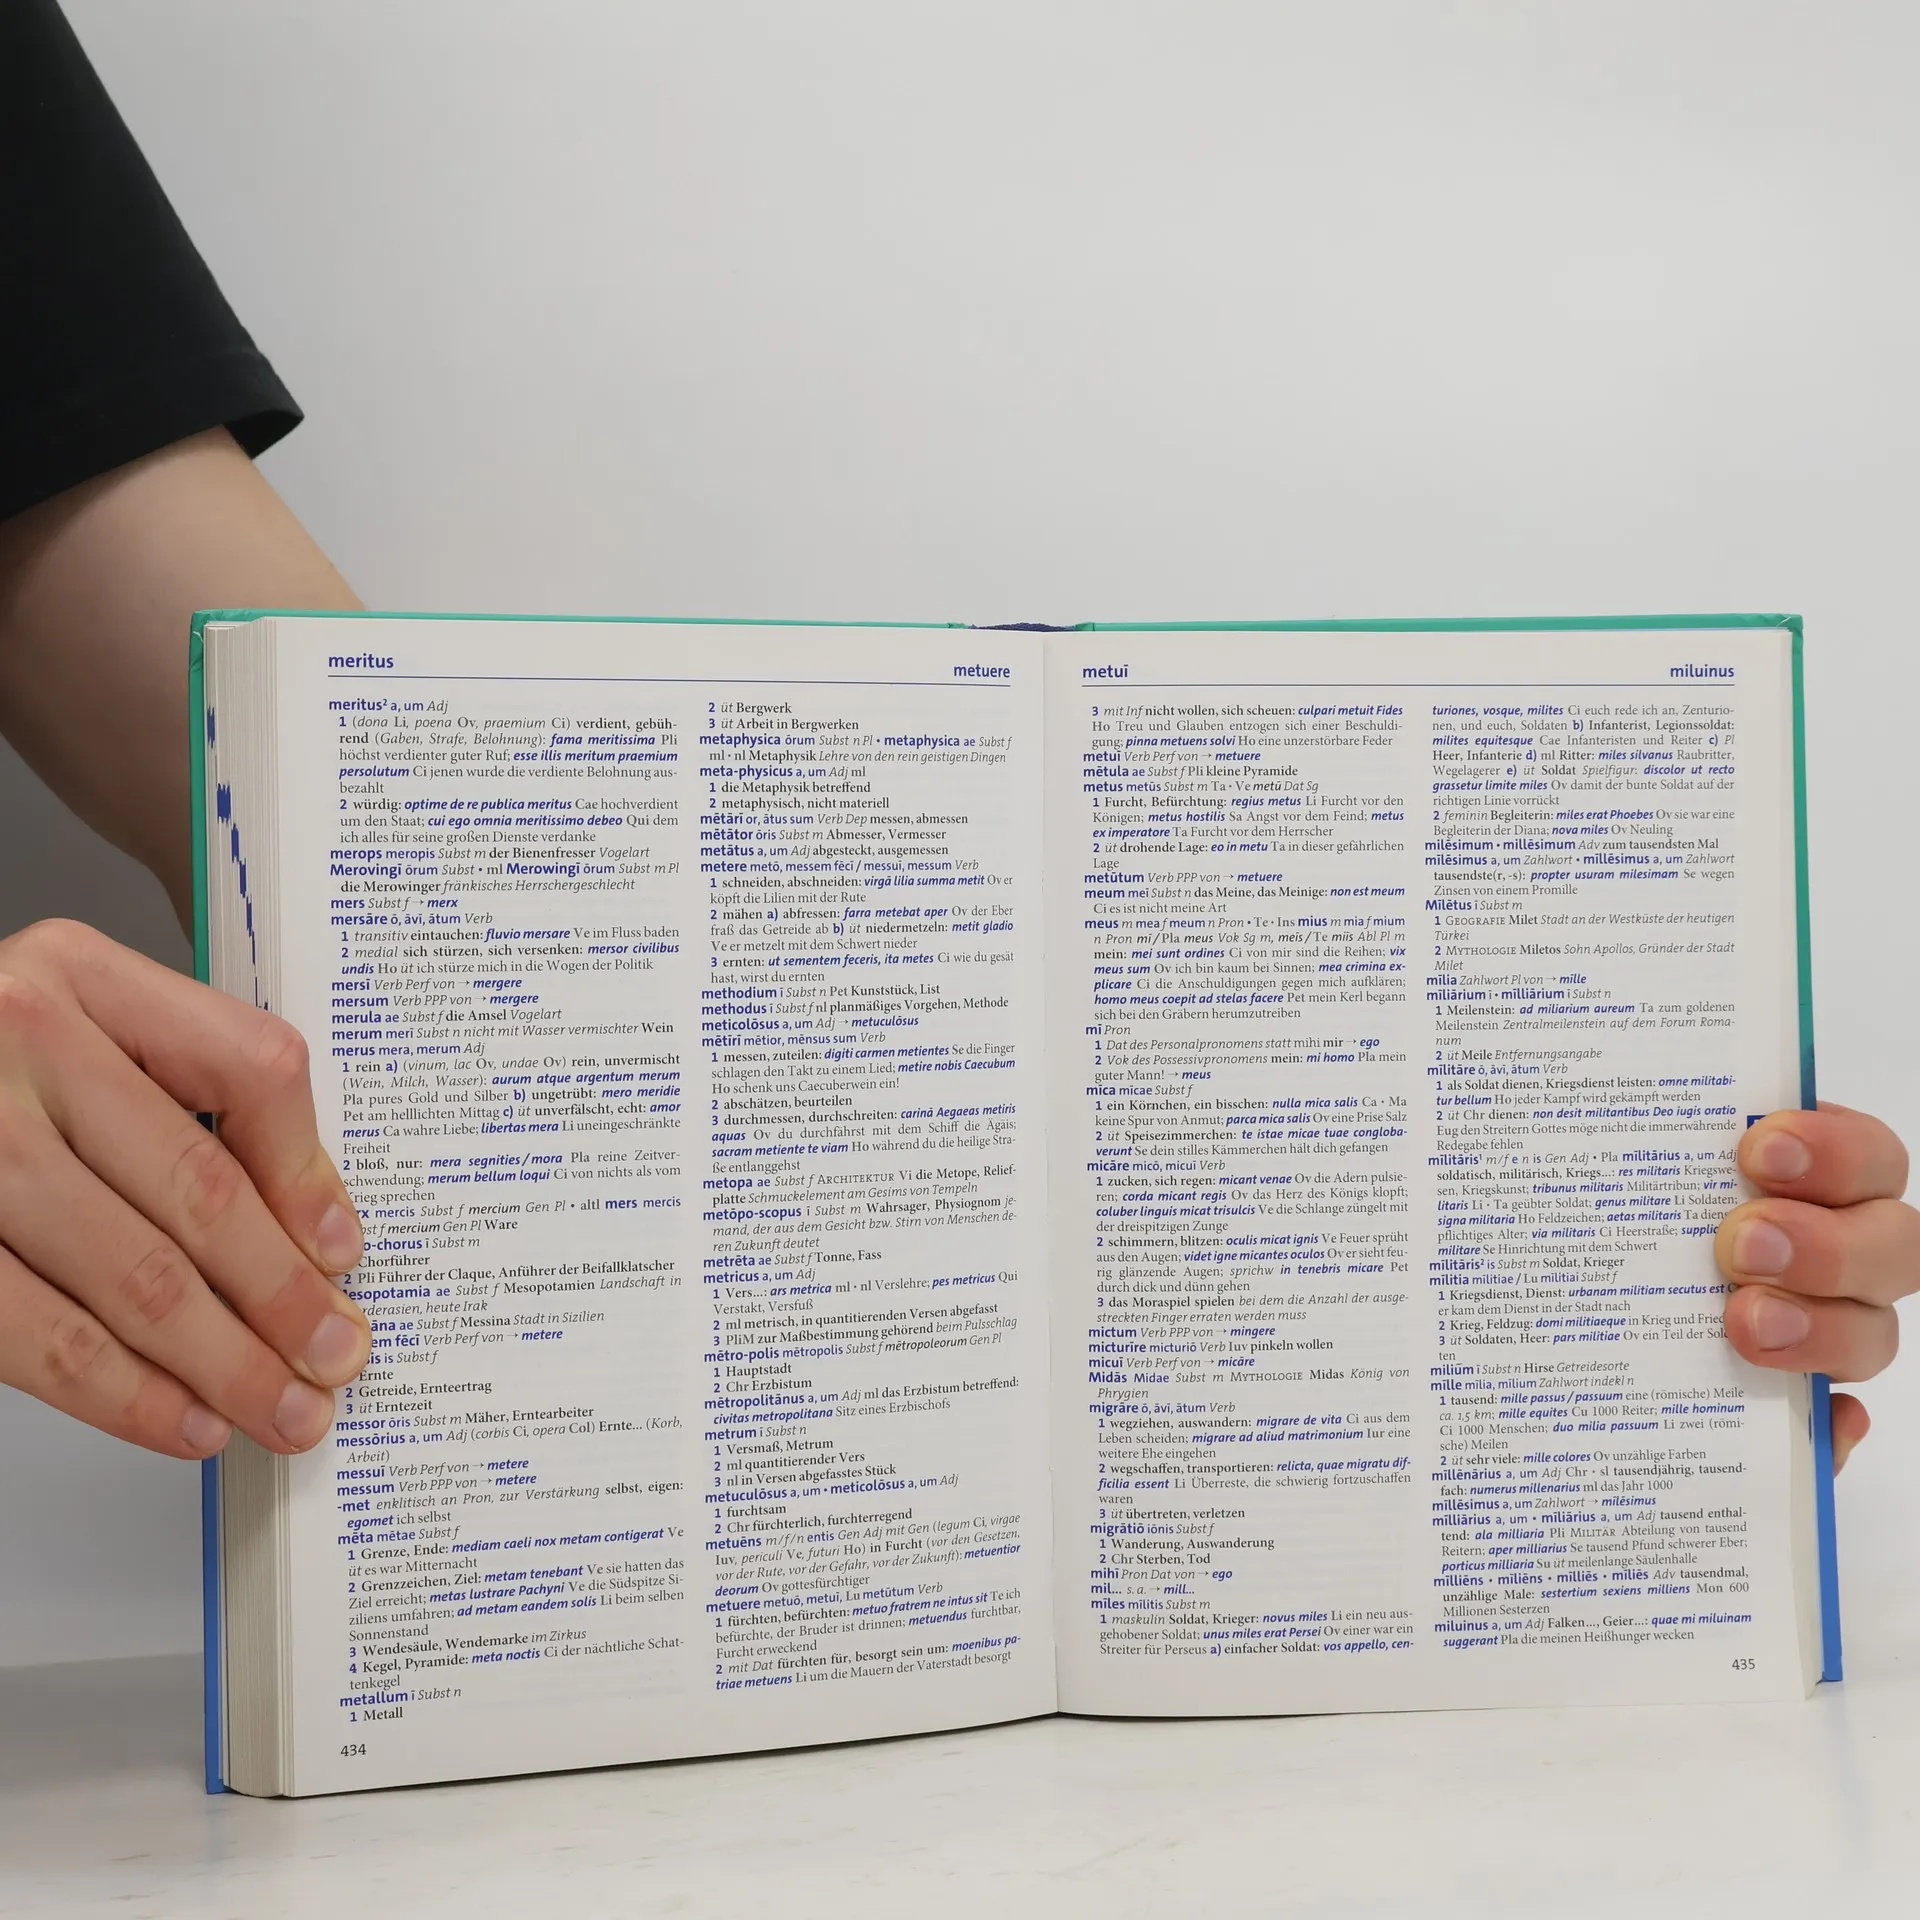 meritus
metuere
meritus² a, um Adj
1 (dona Li, poena Ov, praemium Ci) verdient, gebüh-
rend (Gaben, Strafe, Belohnung): fama meritissima Pli
höchst verdienter guter Ruf; esse illis meritum praemium
persolutum Ci jenen wurde die verdiente Belohnung aus-
bezahlt
2 würdig: optime de re publica meritus Cae hochverdient
um den Staat; cui ego omnia meritissimo debeo Qui dem
ich alles für seine großen Dienste verdanke
merops meropis Subst m der Bienenfresser Vogelart
Merovingī ōrum Subst • ml Merowingī ōrum Subst m Pl
die Merowinger fränkisches Herrschergeschlecht
mers Subst f → merx
mersāre ō, āvī, ātum Verb
1 transitiv eintauchen: fluvio mersare Ve im Fluss baden
2 medial sich stürzen, sich versenken: mersor civilibus
undis Ho üt ich stürze mich in die Wogen der Politik
mersī Verb Perf von → mergere
mersum Verb PPP von → mergere
merula ae Subst f die Amsel Vogelart
merum merī Subst n nicht mit Wasser vermischter Wein
merus mera, merum Adj
1 rein a) (vinum, lac Ov, undae Ov) rein, unvermischt
(Wein, Milch, Wasser): aurum atque argentum merum
Pla pures Gold und Silber b) ungetrübt: mero meridie
Pet am helllichten Mittag c) üt unverfälscht, echt: amor
merus Ca wahre Liebe; libertas mera Li uneingeschränkte
Freiheit
2 bloß, nur: mera segnities/mora Pla reine Zeitver-
schwendung; merum bellum loqui Ci von nichts als vom
Krieg sprechen
rx mercis Subst f mercium Gen Pl • altl mers mercis
bst f mercium Gen Pl Ware
o-chorus ī Subst m
Chorführer
2 Pli Führer der Claque, Anführer der Beifallklatscher
esopotamia ae Subst f Mesopotamien Landschaft in
rderasien, heute Irak
āna ae Subst f Messina Stadt in Sizilien
em fēcī Verb Perf von → metere
is is Subst f
Ernte
2 Getreide, Ernteertrag
3 üt Erntezeit
messor ōris Subst m Mäher, Erntearbeiter
messōrius a, um Adj (corbis Ci, opera Col) Ernte... (Korb,
Arbeit)
messuī Verb Perf von → metere
messum Verb PPP von → metere
-met enklitisch an Pron, zur Verstärkung selbst, eigen:
egomet ich selbst
mēta mētae Subst f
1 Grenze, Ende: mediam caeli nox metam contigerat Ve
üt es war Mitternacht
2 Grenzzeichen, Ziel: metam tenebant Ve sie hatten das
Ziel erreicht; metas lustrare Pachyni Ve die Südspitze Si-
ziliens umfahren; ad metam eandem solis Li beim selben
Sonnenstand
3 Wendesäule, Wendemarke im Zirkus
4 Kegel, Pyramide: meta noctis Ci der nächtliche Schat-
tenkegel
metallum ī Subst n
1 Metall
434
2 üt Bergwerk
3 üt Arbeit in Bergwerken
metaphysica ōrum Subst n Pl • metaphysica ae Subst f
ml • nl Metaphysik Lehre von den rein geistigen Dingen
meta-physicus a, um Adj ml
1 die Metaphysik betreffend
2 metaphysisch, nicht materiell
mētārī or, ātus sum Verb Dep messen, abmessen
mētātor ōris Subst m Abmesser, Vermesser
metātus a, um Adj abgesteckt, ausgemessen
metere metō, messem fēcī / messuī, messum Verb
1 schneiden, abschneiden: virgā lilia summa metit Ov er
köpft die Lilien mit der Rute
2 mähen a) abfressen: farra metebat aper Ov der Eber
fraß das Getreide ab b) üt niedermetzeln: metit gladio
Ve er metzelt mit dem Schwert nieder
3 ernten: ut sementem feceris, ita metes Ci wie du gesät
hast, wirst du ernten
methodium ī Subst n Pet Kunststück, List
methodus ī Subst f nl planmäßiges Vorgehen, Methode
meticolōsus a, um Adj → metuculōsus
mētīrī mētior, mēnsus sum Verb
1 messen, zuteilen: digiti carmen metientes Se die Finger
schlagen den Takt zu einem Lied; metire nobis Caecubum
Ho schenk uns Caecuberwein ein!
2 abschätzen, beurteilen
3 durchmessen, durchschreiten: carinā Aegaeas metiris
aquas Ov du durchfährst mit dem Schiff die Ägäis;
sacram metiente te viam Ho während du die heilige Stra-
ße entlanggehst
metopa ae Subst f ARCHITEKTUR Vi die Metope, Relief-
platte Schmuckelement am Gesims von Tempeln
metōpo-scopus ī Subst m Wahrsager, Physiognom je-
mand, der aus dem Gesicht bzw. Stirn von Menschen de-
ren Zukunft deutet
metrēta ae Subst f Tonne, Fass
metricus a, um Adj
1 Vers...: ars metrica ml • nl Verslehre; pes metricus Qui
Verstakt, Versfuß
2 ml metrisch, in quantitierenden Versen abgefasst
3 PliM zur Maßbestimmung gehörend beim Pulsschlag
mētro-polis mētropolis Subst f mētropoleorum Gen Pl
1 Hauptstadt
2 Chr Erzbistum
mētropolitānus a, um Adj ml das Erzbistum betreffend:
civitas metropolitana Sitz eines Erzbischofs
metrum ī Subst n
1 Versmaß, Metrum
2 ml quantitierender Vers
3 nl in Versen abgefasstes Stück
metuculōsus a, um • meticolōsus a, um Adj
1 furchtsam
2 Chr fürchterlich, furchterregend
metuēns m/f/n entis Gen Adj mit Gen (legum Ci, virgae
Iuv, periculi Ve, futuri Ho) in Furcht (vor den Gesetzen,
vor der Rute, vor der Gefahr, vor der Zukunft): metuentior
deorum Ov gottesfürchtiger
metuere metuō, metuī, Lu metūtum Verb
1 fürchten, befürchten: metuo fratrem ne intus sit Te ich
befürchte, der Bruder ist drinnen; metuendus furchtbar,
Furcht erweckend
2 mit Dat fürchten für, besorgt sein um: moenibus pa-
triae metuens Li um die Mauern der Vaterstadt besorgt
metuī
miluinus
3 mit Inf nicht wollen, sich scheuen: culpari metuit Fides
Ho Treu und Glauben entzogen sich einer Beschuldi-
gung; pinna metuens solvi Ho eine unzerstörbare Feder
metuī Verb Perf von → metuere
mētula ae Subst f Pli kleine Pyramide
metus metūs Subst m Ta • Ve metū Dat Sg
1 Furcht, Befürchtung: regius metus Li Furcht vor den
Königen; metus hostilis Sa Angst vor dem Feind; metus
ex imperatore Ta Furcht vor dem Herrscher
2 üt drohende Lage: eo in metu Ta in dieser gefährlichen
Lage
metūtum Verb PPP von → metuere
meum meī Subst n das Meine, das Meinige: non est meum
Ci es ist nicht meine Art
meus m mea f meum n Pron • Te • Ins mius m mia f mium
n Pron mī/Pla meus Vok Sg m, meīs/Te miīs Abl Pl m
mein: mei sunt ordines Ci von mir sind die Reihen; vix
meus sum Ov ich bin kaum bei Sinnen; mea crimina ex-
plicare Ci die Anschuldigungen gegen mich aufklären;
homo meus coepit ad stelas facere Pet mein Kerl begann
sich bei den Gräbern herumzutreiben
mī Pron
1 Dat des Personalpronomens statt mihi mir → ego
2 Vok des Possessivpronomens mein: mi homo Pla mein
guter Mann! → meus
mīca mīcae Subst f
1 ein Körnchen, ein bisschen: nulla mica salis Ca • Ma
keine Spur von Anmut; parca mica salis Ov eine Prise Salz
2 üt Speisezimmerchen: te istae micae tuae congloba-
verunt Se dein stilles Kämmerchen hält dich gefangen
micāre micō, micuī Verb
1 zucken, sich regen: micant venae Ov die Adern pulsie-
ren; corda micant regis Ov das Herz des Königs klopft;
coluber linguis micat trisulcis Ve die Schlange züngelt mit
der dreispitzigen Zunge
2 schimmern, blitzen: oculis micat ignis Ve Feuer sprüht
aus den Augen; videt igne micantes oculos Ov er sieht feu-
rig glänzende Augen; sprichw in tenebris micare Pet
durch dick und dünn gehen
3 das Moraspiel spielen bei dem die Anzahl der ausge-
streckten Finger erraten werden muss
mictum Verb PPP von → mingere
micturīre micturiō Verb Iuv pinkeln wollen
micuī Verb Perf von → micāre
Midās Midae Subst m MYTHOLOGIE Midas König von
Phrygien
migrāre ō, āvī, ātum Verb
1 wegziehen, auswandern: migrare de vita Ci aus dem
Leben scheiden; migrare ad aliud matrimonium Iur eine
weitere Ehe eingehen
2 wegschaffen, transportieren: relicta, quae migratu dif-
ficilia essent Li Überreste, die schwierig fortzuschaffen
waren
3 üt übertreten, verletzen
migrātiō iōnis Subst f
1 Wanderung, Auswanderung
2 Chr Sterben, Tod
mihī Pron Dat von → ego
mil... s. a. → mill...
mīles mīlitis Subst m
1 maskulin Soldat, Krieger: novus miles Li ein neu aus-
gehobener Soldat; unus miles erat Persei Ov einer war ein
Streiter für Perseus a) einfacher Soldat: vos appello, cen-
turiones, vosque, milites Ci euch rede ich an, Zenturio-
nen, und euch, Soldaten b) Infanterist, Legionssoldat:
milites equitesque Cae Infanteristen und Reiter c) Pl
Heer, Infanterie d) ml Ritter: miles silvanus Raubritter,
Wegelagerer e) üt Soldat Spielfigur: discolor ut recto
grassetur limite miles Ov damit der bunte Soldat auf der
richtigen Linie vorrückt
2 feminin Begleiterin: miles erat Phoebes Ov sie war eine
Begleiterin der Diana; nova miles Ov Neuling
mīlēsimum • mīllēsimum Adv zum tausendsten Mal
mīlēsimus a, um Zahlwort • mīllēsimus a, um Zahlwort
tausendste(r, -s): propter usuram milesimam Se wegen
Zinsen von einem Promille
Mīlētus ī Subst m
1 GEOGRAFIE Milet Stadt an der Westküste der heutigen
Türkei
2 MYTHOLOGIE Miletos Sohn Apollos, Gründer der Stadt
Milet
mīlia Zahlwort Pl von → mīlle
mīliārium ī • mīlliārium ī Subst n
1 Meilenstein: ad miliarium aureum Ta zum goldenen
Meilenstein Zentralmeilenstein auf dem Forum Roma-
num
2 üt Meile Entfernungsangabe
mīlitāre ō, āvī, ātum Verb
1 als Soldat dienen, Kriegsdienst leisten: omne militabi-
tur bellum Ho jeder Kampf wird gekämpft werden
2 üt Chr dienen: non desit militantibus Deo iugis oratio
Eug den Streitern Gottes möge nicht die immerwährende
Redegabe fehlen
mīlitāris¹ m/f e n is Gen Adj • Pla mīlitārius a, um Adj
soldatisch, militärisch, Kriegs...: res militaris Kriegswe-
sen, Kriegskunst; tribunus militaris Militärtribun; vir mi-
litaris Li • Ta geübter Soldat; genus militare Li Soldaten;
signa militaria Ho Feldzeichen; aetas militaris Ta diens
pflichtiges Alter; via militaris Ci Heerstraße; supplic
militare Se Hinrichtung mit dem Schwert
mīlitāris² is Subst m Soldat, Krieger
mīlitia mīlitiae / Lu mīlitiai Subst f
1 Kriegsdienst, Dienst: urbanam militiam secutus est
er kam dem Dienst in der Stadt nach
2 Krieg, Feldzug: domi militiaeque in Krieg und Fried
3 üt Soldaten, Heer: pars militiae Ov ein Teil der Sol
ten
milium ī Subst n Hirse Getreidesorte
mīlle mīlia, mīlium Zahlwort indekl n
1 tausend: mille passus / passuum eine (römische) Meile
ca. 1,5 km; mille equites Cu 1000 Reiter; mille hominum
Ci 1000 Menschen; duo milia passuum Li zwei (römi-
sche) Meilen
2 üt sehr viele: mille colores Ov unzählige Farben
mīllēnārius a, um Adj Chr • sl tausendjährig, tausend-
fach: numerus millenarius ml das Jahr 1000
mīllēsimus a, um Zahlwort → mīlēsimus
mīlliārius a, um • mīliārius a, um Adj tausend enthal-
tend: ala milliaria Pli MILITÄR Abteilung von tausend
Reitern; aper milliarius Se tausend Pfund schwerer Eber;
porticus milliaria Su üt meilenlange Säulenhalle
mīlliēns • mīliēns • mīlliēs • mīliēs Adv tausendmal,
unzählige Male: sestertium sexiens milliens Mon 600
Millionen Sesterzen
miluinus a, um Adj Falken..., Geier...: quae mi miluinam
suggerant Pla die meinen Heißhunger wecken
435